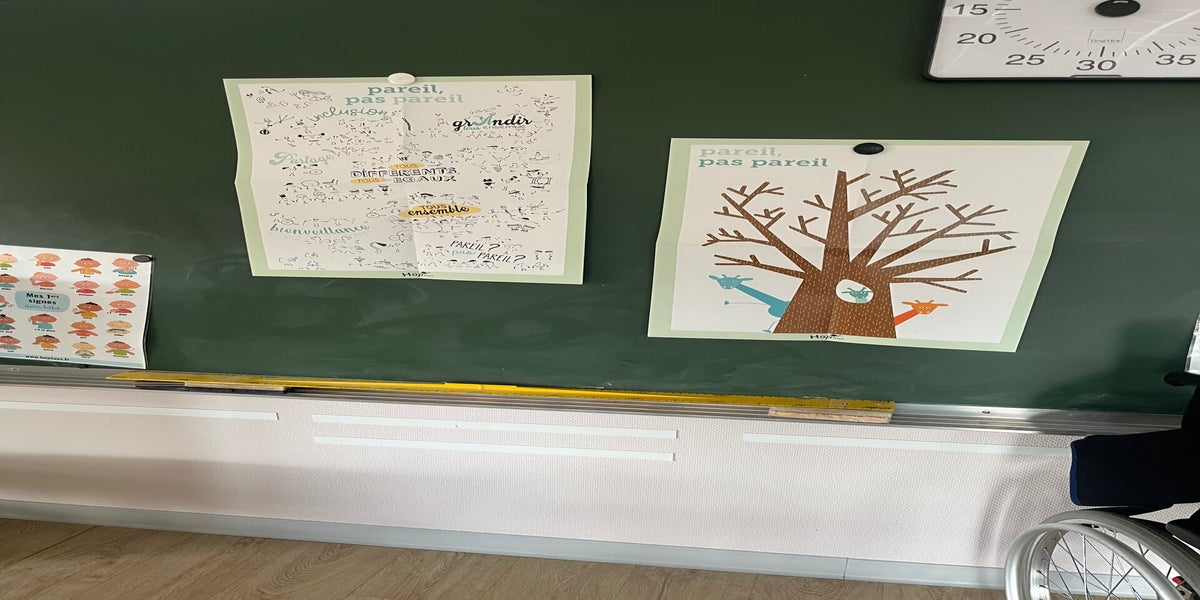 15
20
25
30
35
TimeTEX
pareil,
pas pareil
inclusion
grAndir
tous ensemble
Partage
TOUS
DIFFÉRENTS,
TOUS ÉGAUX
TOUS
ensemble
bienveillance
PAREIL?
pas PAREIL?
Hop
pareil,
pas pareil
Hop
Mes 1ers
signes
www.hoptoys.fr